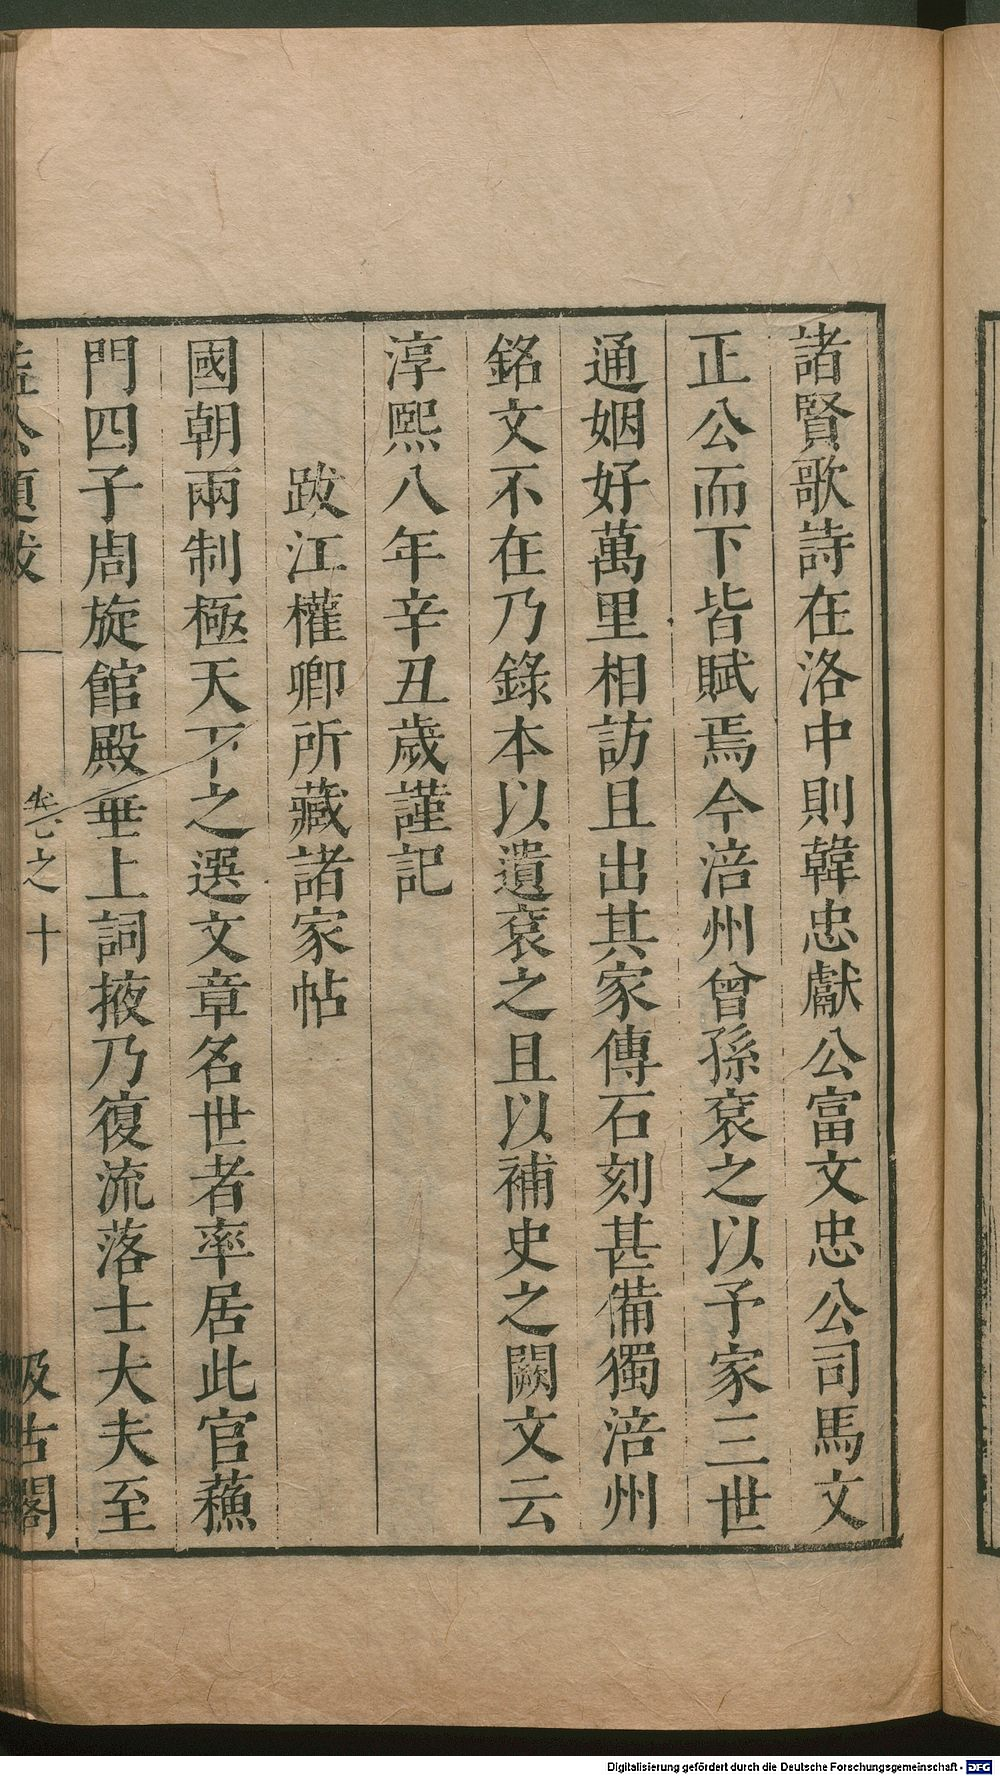 諸賢歌詩在洛中則韓忠獻公富文忠公司馬文
正公而下皆賦焉今涪州曾孫袞之以予家三世
通姻好萬里相訪且出其家傳石刻甚備獨涪州
銘文不在乃錄本以遺袞之且以補史之闕文云
淳熙八年辛丑歲謹記
跋江權卿所藏諸家帖
國朝兩制極天下之選文章名世者率居此官蘓
門四子周旋館殿垂上詞掖乃復流落士大夫至
益公題跋 卷之十 汲古閣
Digitalisierung gefördert durch die Deutsche Forschungsgemeinschaft - DFG